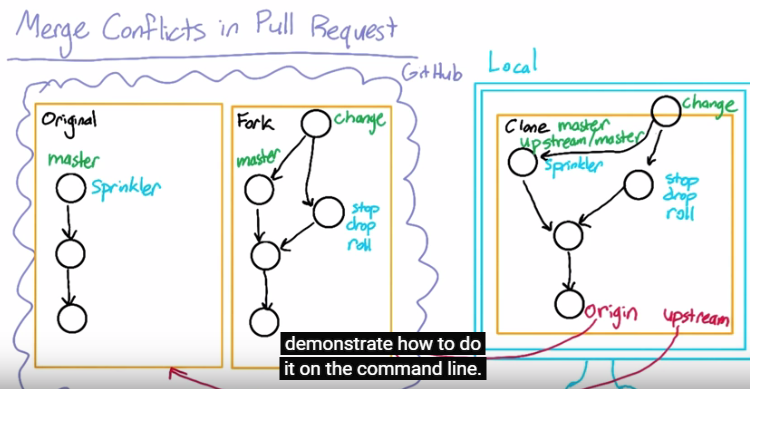 Merge Conflicts in Pull Request
GitHub
Local
Original
master
Sprinkler
Fork
change
master
stop
drop
roll
change
Clone master
upstream/master
Sprinkler
stop
drop
roll
origin
upstream
demonstrate how to do
it on the command line.